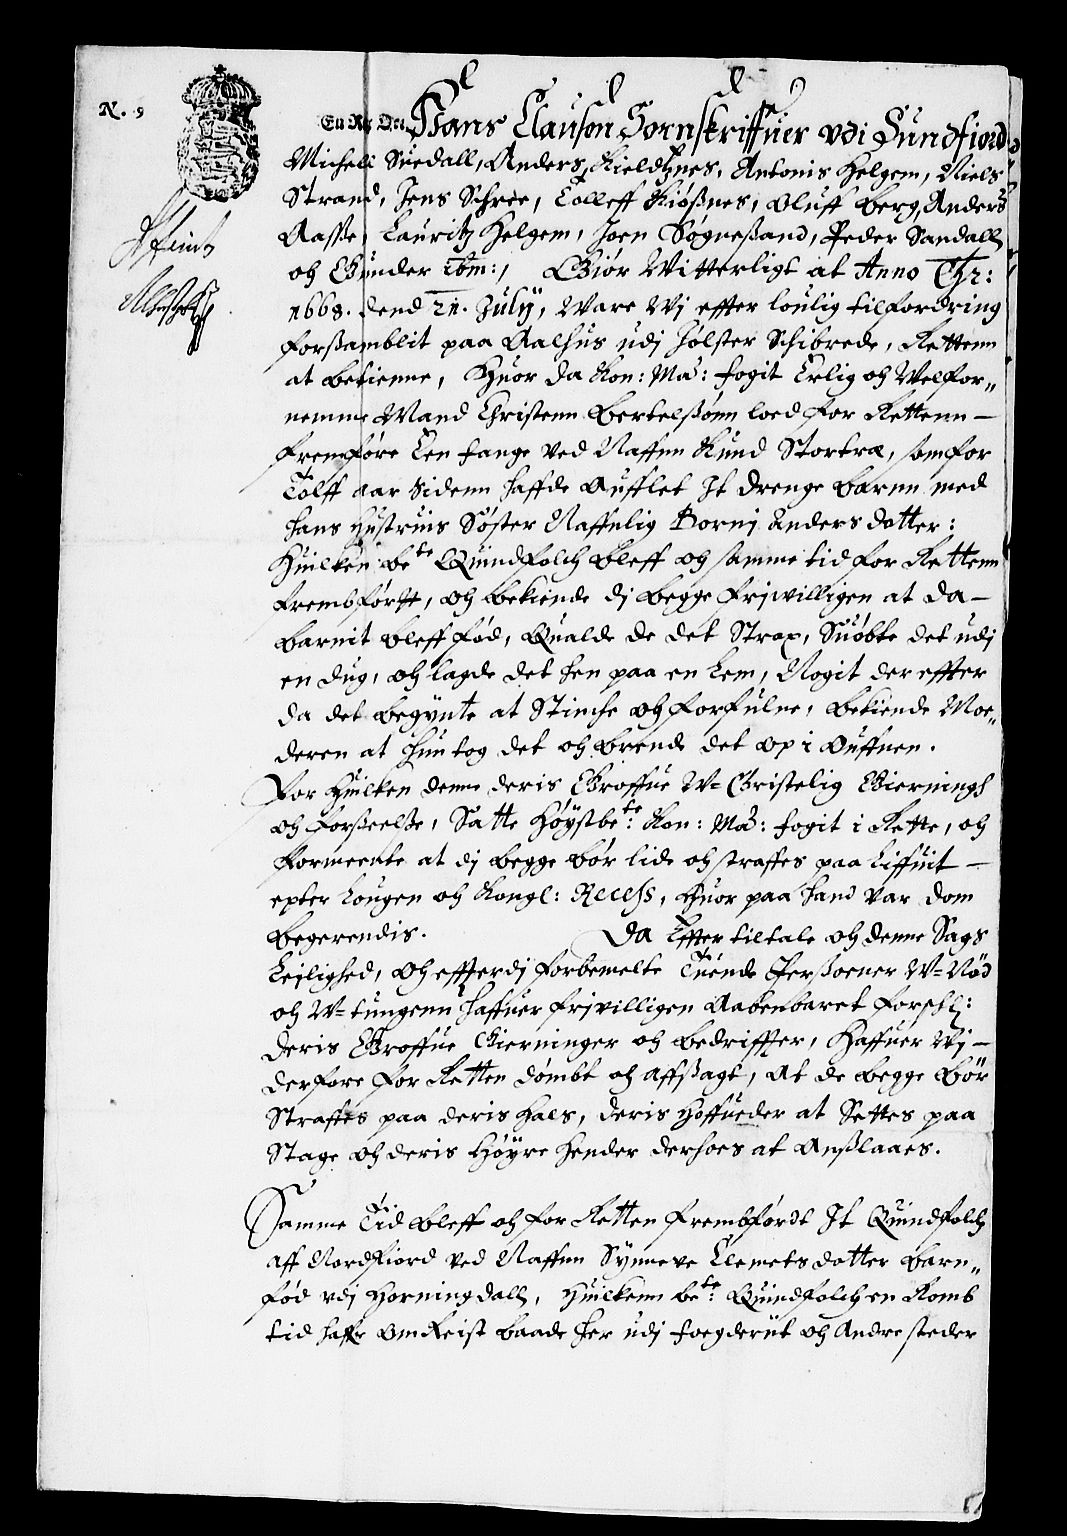 N. 9
En Rx Ort
Hans Clauson Sornskriffuer vdi Sundfiord
Michell Suedall, Anders Kieldsnes, Antonis Helgem, Niels
Strand, Jens Schree, Tolleff Kiosnes, Oluff Berg, Anders
Aasse, Lauritz Helgem, Joen Søgnesand, Peder Sandall
och Gunder ibm:, Giør Witterligt at Anno Chr:
1668. dend 21. Julÿ, Ware Wj effter louligtilfordring
forsamblit paa Aalhus udj Jølster Schibrede, Rettenn
at betienne, Huor da Kon: Ma: fogit Erlig och Welfor„
nemme Mand Christenn Bertelsønn loed for Rettenn —
fremføre Een fange ved Naffnn Knud Stortræ, som for
Tolff aar sidenn haffde aufflet It drenge barnn med
hans Hustruis Søster Naffnlig Bornj Andersdotter:
Huilken be:te Quindfolch bleff och samme tid for Rettenn
frembførtt, och bekiende dj begge friwilligen at da —
barnit bleff fød, Qualde de det Strax, Suøbte det udj
en dug, och lagde det hen paa en Lem, Nogit der effter
da det begynte at Stinche och forfulne, bekiende Moe„
deren at hun tog det och brende det op i Ouffnen.
For Huilken denne deris Groffue W= Christelig Gierningh
och forseelse, Satte Høystbe:te Kon: Ma: fogit i Rette, och
formeente at dj begge bør lide och straffes paa Liffuit —
epter Lougen och Kongl: Recess, Huor paa hand var dom
begerendis. Da Effter tiltale och denne Sags
Lejlighed, och effterdj forbemelte Tuende Personer W= Nød
och W= tungenn haffuer friwilligen Aabenbaret
deris Groffue Gierninger och bedriffter, Haffuer Wj —
derfore for Retten dømbt och affsagt, At de begge bør
Straffes paa deris Hals, deris Hoffueder at Settes paa
Stage och deris Høyre Hender derhoes at Anslaaes.
Samme Tid bleff och for Retten frembførdt It Quindfolch
aff Nordfiord ved Naffnn Synneve Clemetsdotter barn„
fød vdj Horningdall, Huilkenn be:te Quindfolch en Romb
tid haffr omreist baade her udj foegderiit och Andre steder